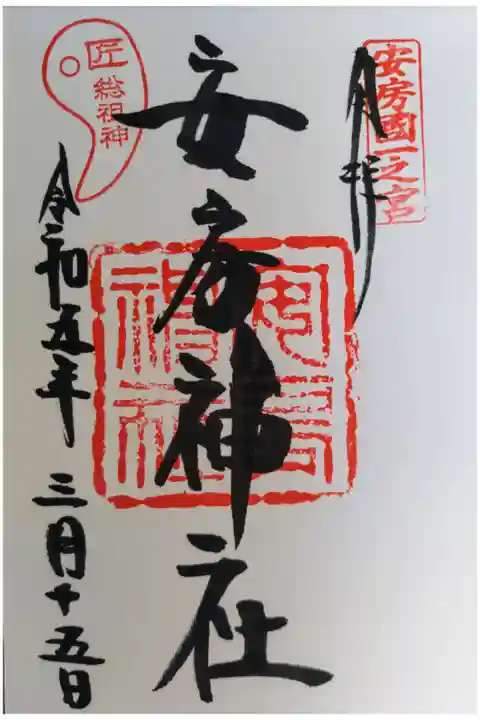 安房國一之宮
奉拝
安房神社
安房神社
匠総祖神
令和五年 三月十五日